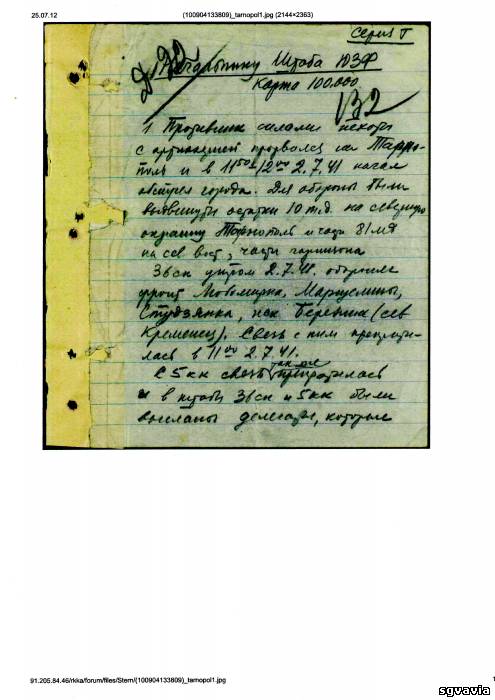 25.07.12 (100904133809)_tarnopol1.jpg (2144×2363)
Серия Г
Начальнику Штаба ЮЗФ
Карта 100.000
1. Противник силами пехоты
с артиллерией прорвался на Тарно-
поль и в 11⁵⁰–12⁰⁰ 2.7.41 начал
обстрел города. Для обороны были
выдвинуты остатки 10 т.д. на северную
окраину Тарнополь и части 81 мд
на сев вост, части гарнизона
36 ск утром 2.7.41. обороняет
фронт
Студзянка, (сев
Кременец). Связь с ним прекрати-
лась в 11⁰⁰ 2.7.41.
С 5 кк связь также прекратилась
и в штабы 36 ск и 5 кк были
высланы делегаты, которые
91.205.84.46/rkka/forum/files/Stern/(100904133809)_tarnopol1.jpg 1
sgvavia